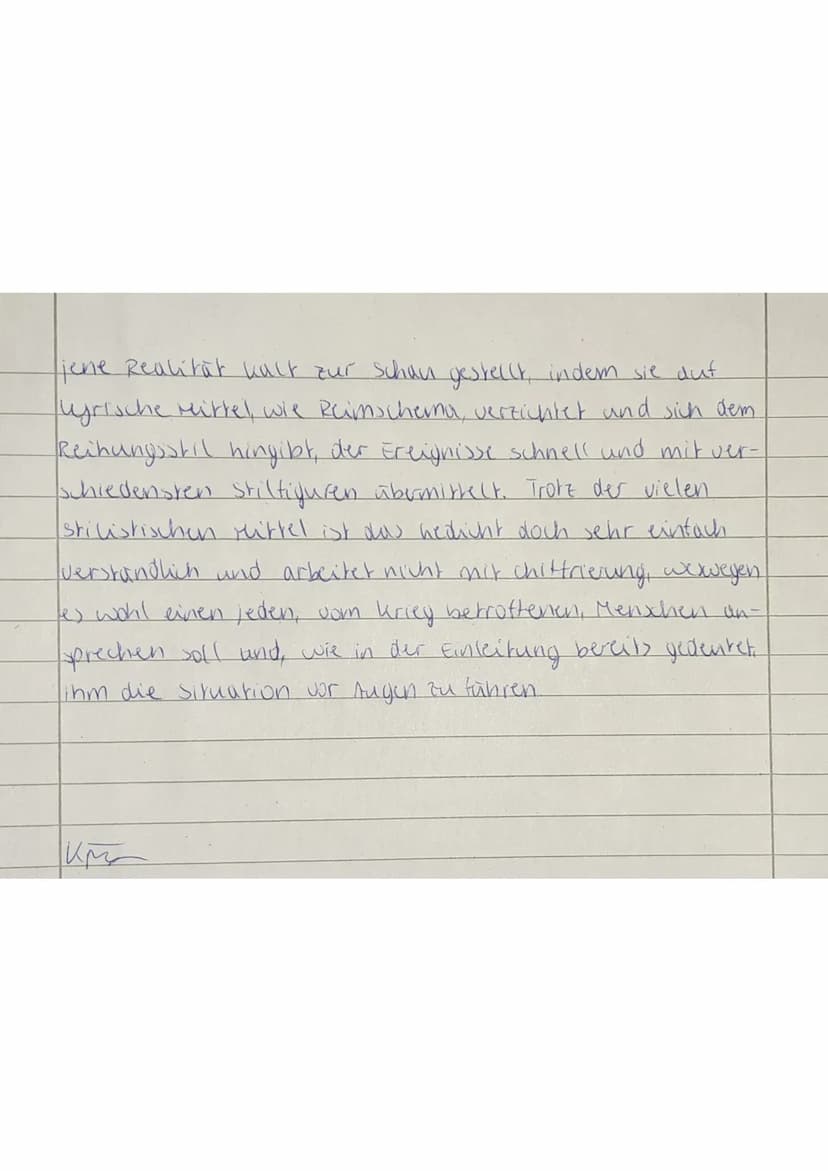 jene Realität kalt zur Schau gestellt, indem sie auf
lyrische Mittel, wie Reimschema, verzichtet und sich dem
Reihungsstil hingibt, der Ereignisse schnell und mit ver-
schiedensten Stilfiguren übermittelt. Trotz der vielen
stilistischen Mittel ist das Gedicht doch sehr einfach
verständlich und arbeitet nicht mit Chiffrierung, weswegen
es wohl einen jeden, vom Krieg betroffenen, Menschen an-
sprechen soll und, wie in der Einleitung bereits gedeutet,
ihm die Situation vor Augen zu führen